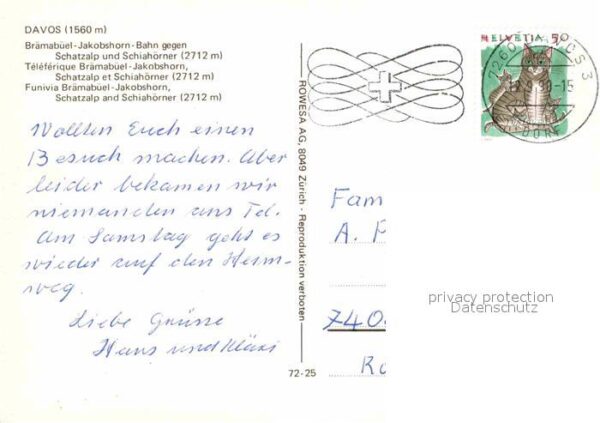 DAVOS (1560 m)
Brämabüel-Jakobshorn-Bahn gegen
Schatzalp und Schiahörner (2712 m)
Téléférique Brämabüel-Jakobshorn,
Schatzalp et Schiahörner (2712 m)
Funivia Brämabüel-Jakobshorn,
Schatzalp and Schiahörner (2712 m)
Wollten Euch einen
Besuch machen. Aber
leider bekamen wir
niemanden ans Tel.
Am Samstag geht es
wieder auf den Heim-
weg.
Liebe Grüsse
Hans und Kläxi
ROWESA AG, 8049 Zürich - Reproduktion verboten
72-25
HELVETIA 50
7260 DAVOS 3
DORF
Fam
A. F
740
Ro
privacy protection
Datenschutz